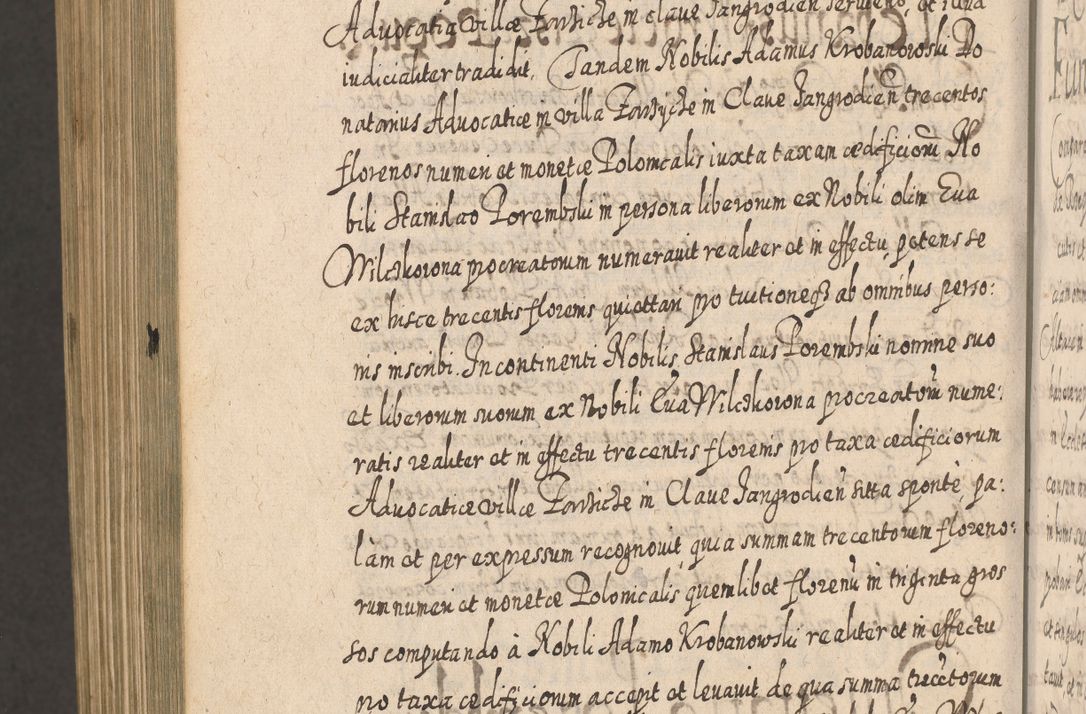 Advocatia villæ Zarzicze in clave Jangrodien
iudicialiter tradidit. Tandem Nobilis Adamus Krobanowski Do
natarius Advocatiæ in villa Zarzycze in Clave Jangrodieñ trecentos
florenos numeri et monetæ Polonicalis iuxta taxam ædificiorũ No
bili Stanislao Porembski in persona liberorum ex Nobili olim Eva
Wilczkowona procreatorum numeravit realiter et in effectu, petens se
ex hisce trecentis florenis quiettari pro tuitioneq3 ab omnibus perso:
nis inscribi. In continenti Nobilis Stanislaus Porembski nomine suo
et liberorum suorum ex Nobili Eva Wilczkowona procreatorũ nume:
ratis realiter et in effectu trecentis florenis pro taxa ædificiorum
Advocatiæ villæ Zarzicze in Clave Jangrodieñ sitta sponte pa:
lam et per expressum recognovit quia summam trecentorum floreno:
rum numeri et monetæ Polonicalis quemlibet florenũ in triginta gros
sos computando à Nobili Adamo Krobanowski realiter et in effectu
pro taxa ædificiorum accepit et levavit de qua summa trecẽtorum